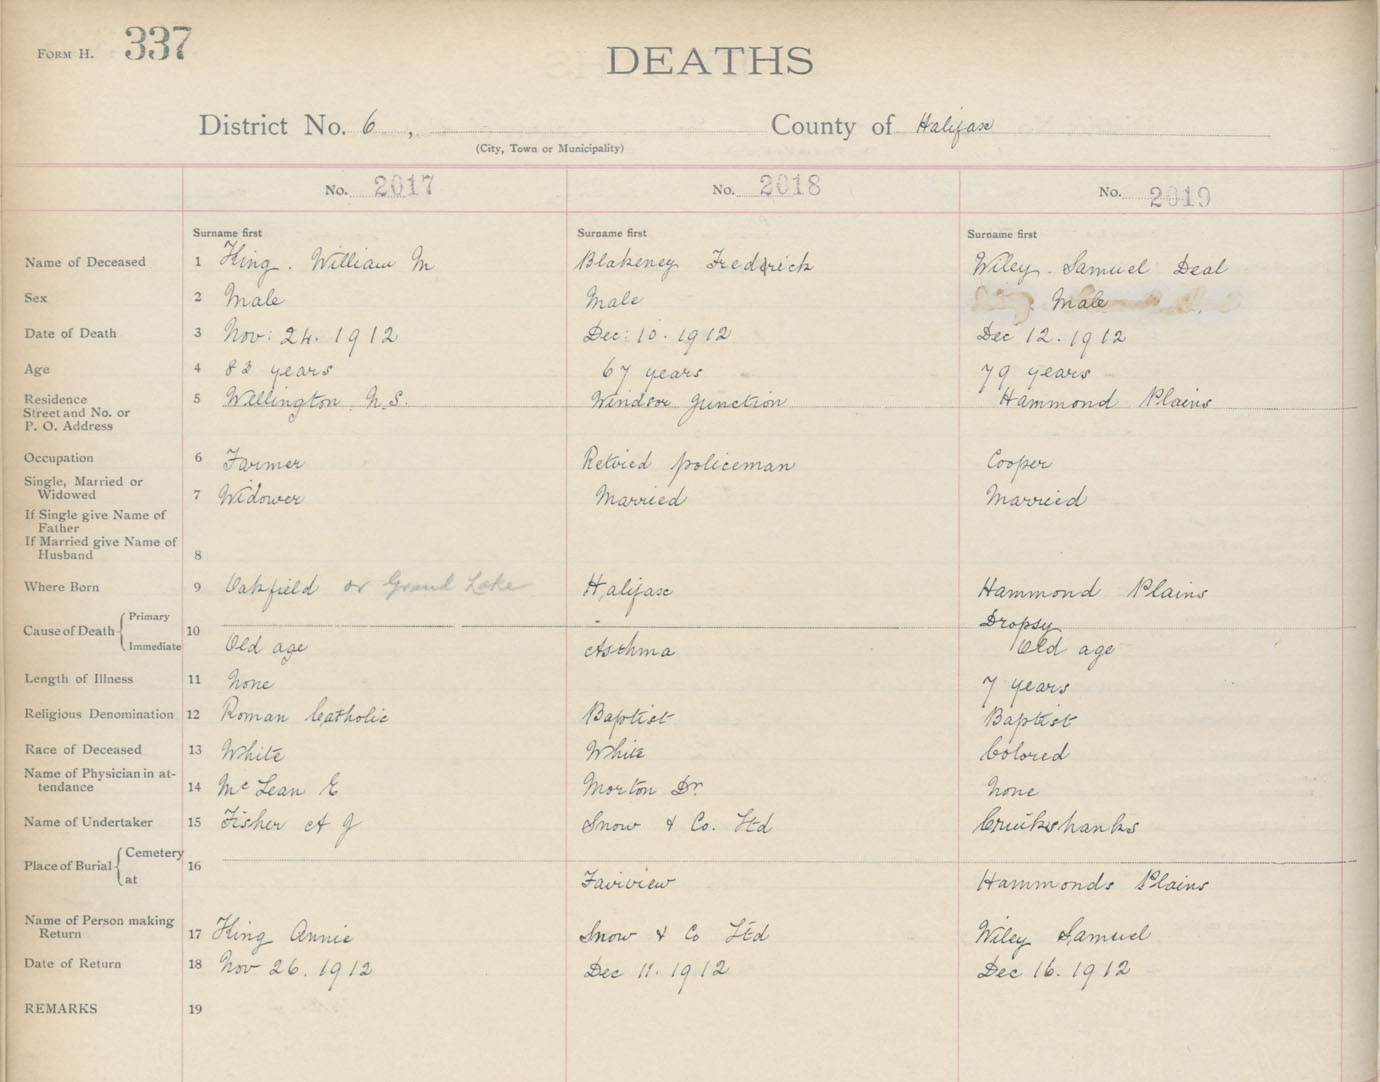 FORM H. 337
DEATHS
District No. 6 , County of Halifax
(City, Town or Municipality)
No. 2017 No. 2018 No. 2019
Surname first Surname first Surname first
Name of Deceased 1 King. William M Blakeney Fredrick Wiley. Samuel Deal
Sex 2 Male Male Male
Date of Death 3 Nov: 24. 1912 Dec: 10. 1912 Dec 12. 1912
Age 4 83 years 67 years 79 years
Residence 5 Wellington N.S. Windsor Junction Hammond Plains
Street and No. or
P. O. Address
Occupation 6 Farmer Retried policeman Cooper
Single, Married or
Widowed 7 Widower Married Married
If Single give Name of
Father
If Married give Name of
Husband 8
Where Born 9 Oakfield or Grand Lake Halifax Hammond Plains
Cause of Death Primary 10 Dropsy
Immediate Old age Asthma Old age
Length of Illness 11 None 7 years
Religious Denomination 12 Roman Catholic Baptist Baptist
Race of Deceased 13 White White Colored
Name of Physician in at-
tendance 14 Mc Lean E Morton Dr. None
Name of Undertaker 15 Fisher A J Snow & Co. Ltd Cruikshanks
Place of Burial Cemetery 16
at Fairview Hammonds Plains
Name of Person making
Return 17 King Annie Snow & Co Ltd Wiley Samuel
Date of Return 18 Nov 26. 1912 Dec 11. 1912 Dec 16. 1912
REMARKS 19